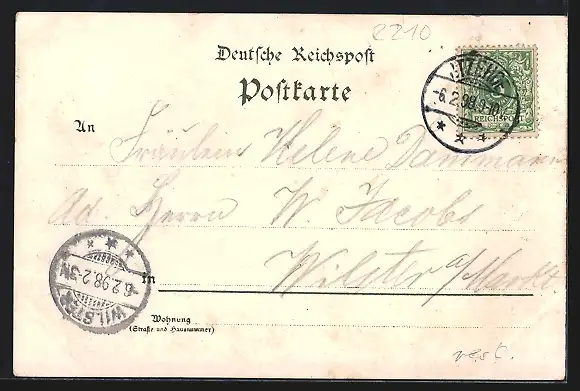 2210
Deutsche Reichspost
Postkarte
ITZEHOE
-6.2.98.9-10
REICHSPOST
An
Fräulein Helene Dammann
Ad. Herrn W. Jacobs
in Wilster a/Markt.
WILSTER
6.2.98.2-3N
Wohnung
(Straße und Hausnummer)
rest.